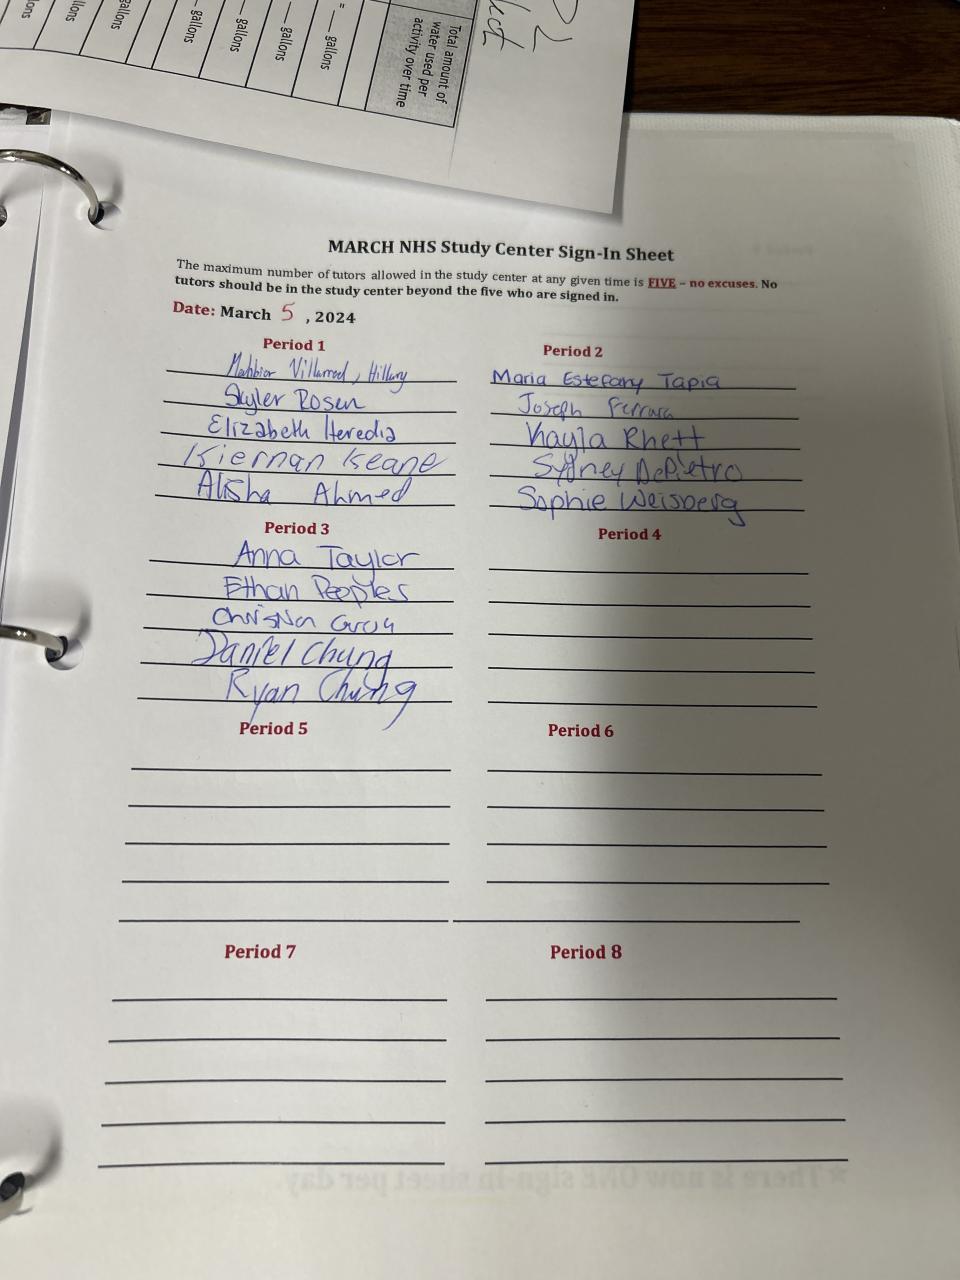 Total amount of
water used per
activity over time
= ___ gallons
gallons
gallons
gallons
gallons
MARCH NHS Study Center Sign-In Sheet
The maximum number of tutors allowed in the study center at any given time is FIVE – no excuses. No
tutors should be in the study center beyond the five who are signed in.
Date: March 5 , 2024
Period 1
Hillary
Skyler Rosen
Elizabeth Heredia
Kiernan Keane
Alisha Ahmed
Period 2
Maria Estefany Tapia
Joseph Ferrara
Kayla Rhett
Sydney DePietro
Sophie Weisberg
Period 3
Anna Taylor
Ethan Peoples
Daniel Chung
Ryan Chung
Period 4
Period 5
Period 6
Period 7
Period 8
*There is now ONE sign-in sheet per day.